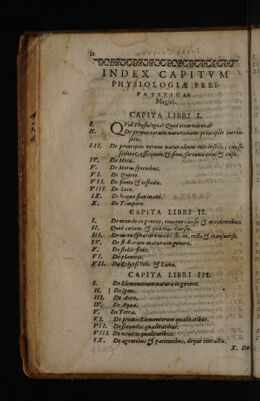 INDEX CAPITVM
PHYSIOLOGIÆ PERI-
PATETICÆ
Magiri.
CAPITA LIBRI I.
I. QVid Physiologia? Quid eius natura?
II. De principiis rerum naturalium
III. De principiis rerum naturalium externis, s. causis
efficiente, & fine, fortuna & casu.
IV. De Motu.
V. De Motus speciebus.
VI. De Quiete.
VII. De finito & infinito.
VIII. De Loco.
IX. De Vacuo sive inani.
X. De Tempore.
CAPITA LIBRI II.
I. De mundo in genere, eiusque causis & accidentibus.
II. Quid cælum, & quæ eius causæ.
III. De motu
IV. De stellarum natura in genere.
V. De stellis fixis.
VI. De planetis.
VII. De Eclypsi Solis & Lunæ.
CAPITA LIBRI III.
I. De Elementorum natura in genere.
II. De Igne.
III. De Aere.
IV. De Aqua.
V. De Terra.
VI. De primis Elementorum qualitatibus.
VII. De secundis qualitatibus.
VIII. De occultis qualitatibus.
IX. De agentibus & patientibus, deque contactu.
X. De